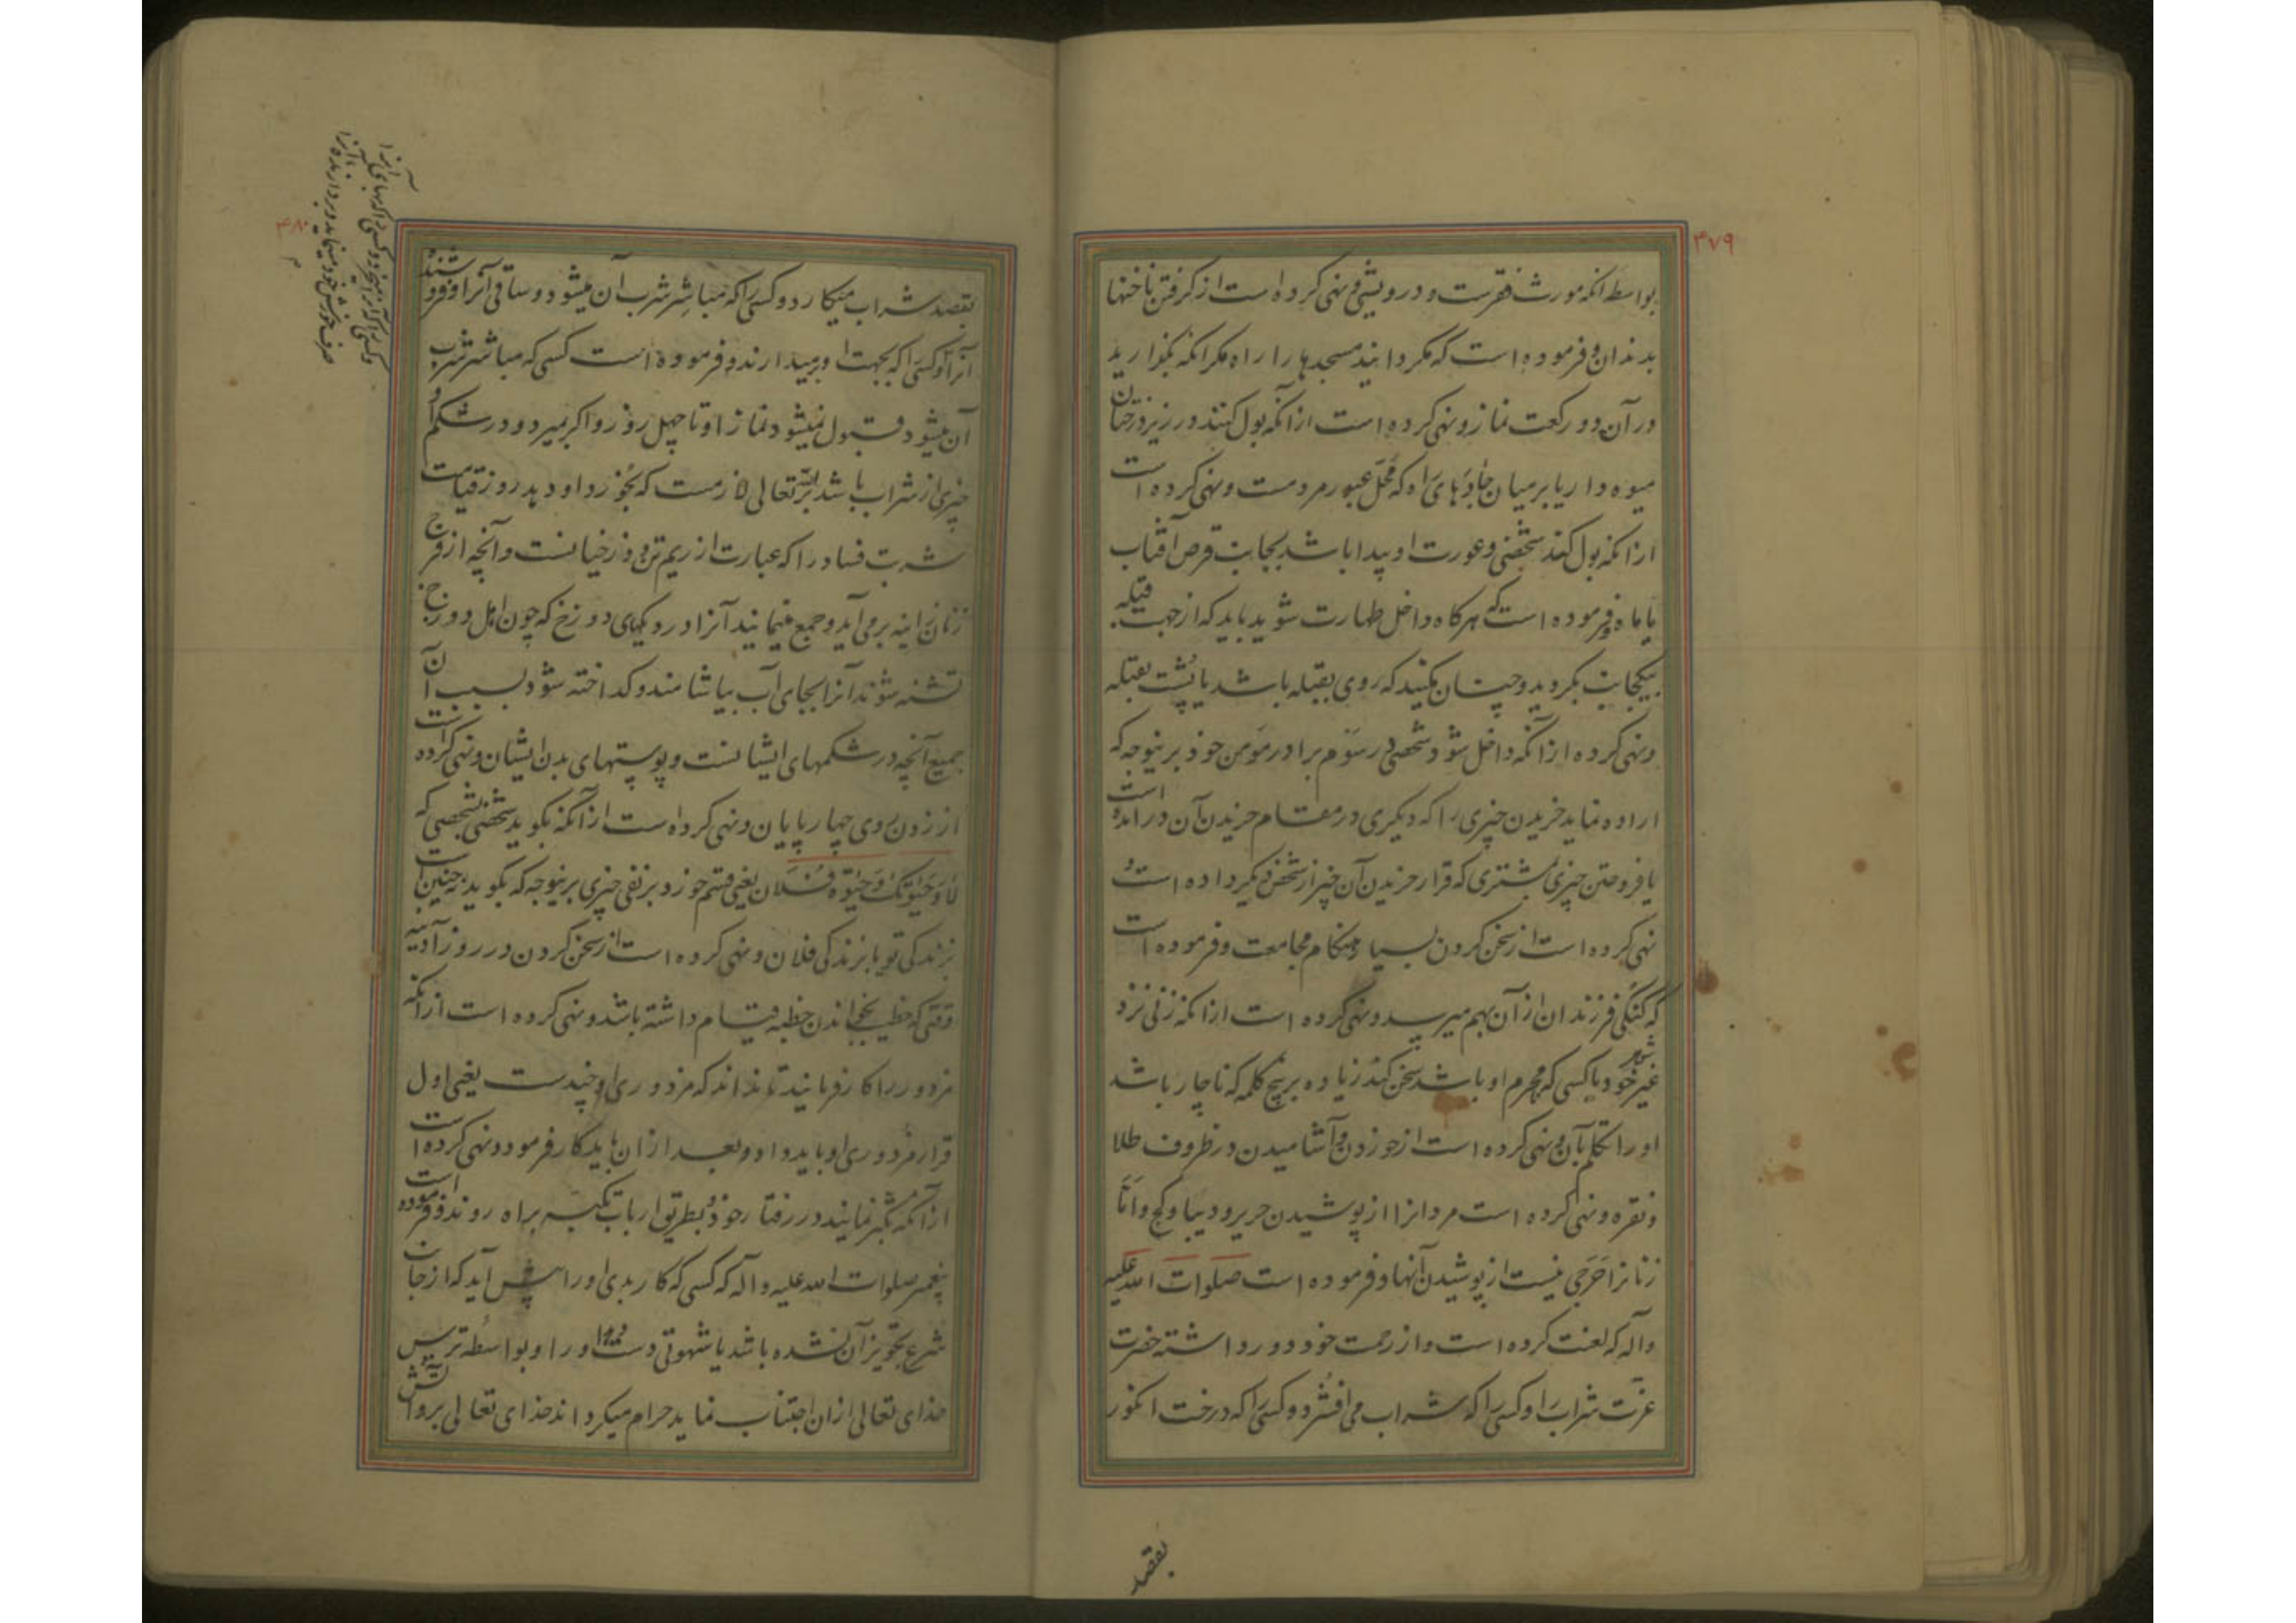 ۴۷۹
بواسطه انکه مورث فقرست و درویشی و نهی کرده است از کرفتن ناخنها
بدندان و فرموده است که مکردانید مسجدها را راه مکر انکه بکذارید
در آن دو رکعت نماز و نهی کرده است از آنکه بول کنند در زیر درختان
میوه دار یا بر میان جادّهای راه که محَلّ عبور مردمست و نهی کرده است
ازانکه بول کند شخصی و عورت او پیدا باشد بجانب قرص آفتاب
یا ماه و فرموده است که هرکاه داخل طهارت شوید باید که از جهت قبله
بیکجانب بکردید و چنان مکنید که روی بقبله باشد یا پُشت بقبله
و نهی کرده ازانکه داخل شود شخصی در سَوْم برادر مؤمن خود برینوجه که
اراده نماید خریدن چیزی را که دیکری در مقام خریدن آن درآمده است
یا فروختن چیزی بمشتری که قرار خریدن آن چیز از شخص دیکر داده است و
نهی کرده است از سخن کردن بسیار هنکام مجامعت و فرموده است
که کنکی فرزندان از آن بهم میرسد و نهی کرده است ازانکه زنی نزد
غیر شوهر خود یا کسی که محرم او باشد سخن کند زیاده بر پنج کلمه که ناچار باشد
او را تکلم بآن و نهی کرده است از خوردن و آشامیدن در ظروف طلا
و نقره و نهی کرده است مردانرا از پوشیدن حریر و دیبا و کج و امّا
زنانرا حَرَجی نیست از پوشیدن آنها و فرموده است صلوات الله علیه
وآله که لعنت کرده است و از رحمت خود دور داشته حضرت
عزت شراب را و کسی را که شراب می افشُرد و کسی را که درخت انکور
بقصد
۴۸۰
بقصد شراب میکارد و کسی را که مباشر شرب آن میشود و ساقی آنرا و فروشنده
آنرا و کسی را که بجهت او برمیدارند و فرموده است کسی که مباشر شرب
آن میشود قبول نمیشود نماز او تا چهل روز و اکر بمیرد و در شکم او
چیزی از شراب باشد بر الله تعالی لازمست که بخوُرد او دهد روز قیامت
شربت فساد را که عبارت از ریم تن دوزخیانست و آنچه از فرج
زنان زانیه برمی آید و جمع مینمایند آنرا در دیکهای دوزخ که چون اهل دوزخ
تشنه شوند آنرا بجای آب بیاشامند و کداخته شود بسبب آن
جمیع آنچه در شکمهای ایشانست و پوستهای بدن ایشان و نهی کرده است
از زدن بروی چهارپایان و نهی کرده است ازآنکه بکوید شخصی بشخصی که
لا وَحَیٰوتِکَ وَ حَیٰوة فُلان یعنی قسم خورد بر نفی چیزی برینوجه که بکوید نه چنین است
بزندکی تو یا بزندکی فلان و نهی کرده است از سخن کردن در روز آدینه
وقتی که خطیب بخواندن خطبه قیام داشته باشد و نهی کرده است ازانکه
مزدور را کار فرمایند تا نداند که مزدوری او چندست یعنی اول
قرار مزدوری او باید داد و بعد ازان باید کار فرمود و نهی کرده است
ازآنکه تکبّر نمایند در رفتار خود و بطریق ارباب تکبّر براه روند و فرموده است
پیغمبر صلوات الله علیه وآله که کسی که کار بدی او را پیش آید که از جانب
شرع تجویز آن نشده باشد یا شهوتی دست دهد او را و بواسطه ترس
خدای تعالی ازان اجتناب نماید حرام میکرداند خدای تعالی برو آتش